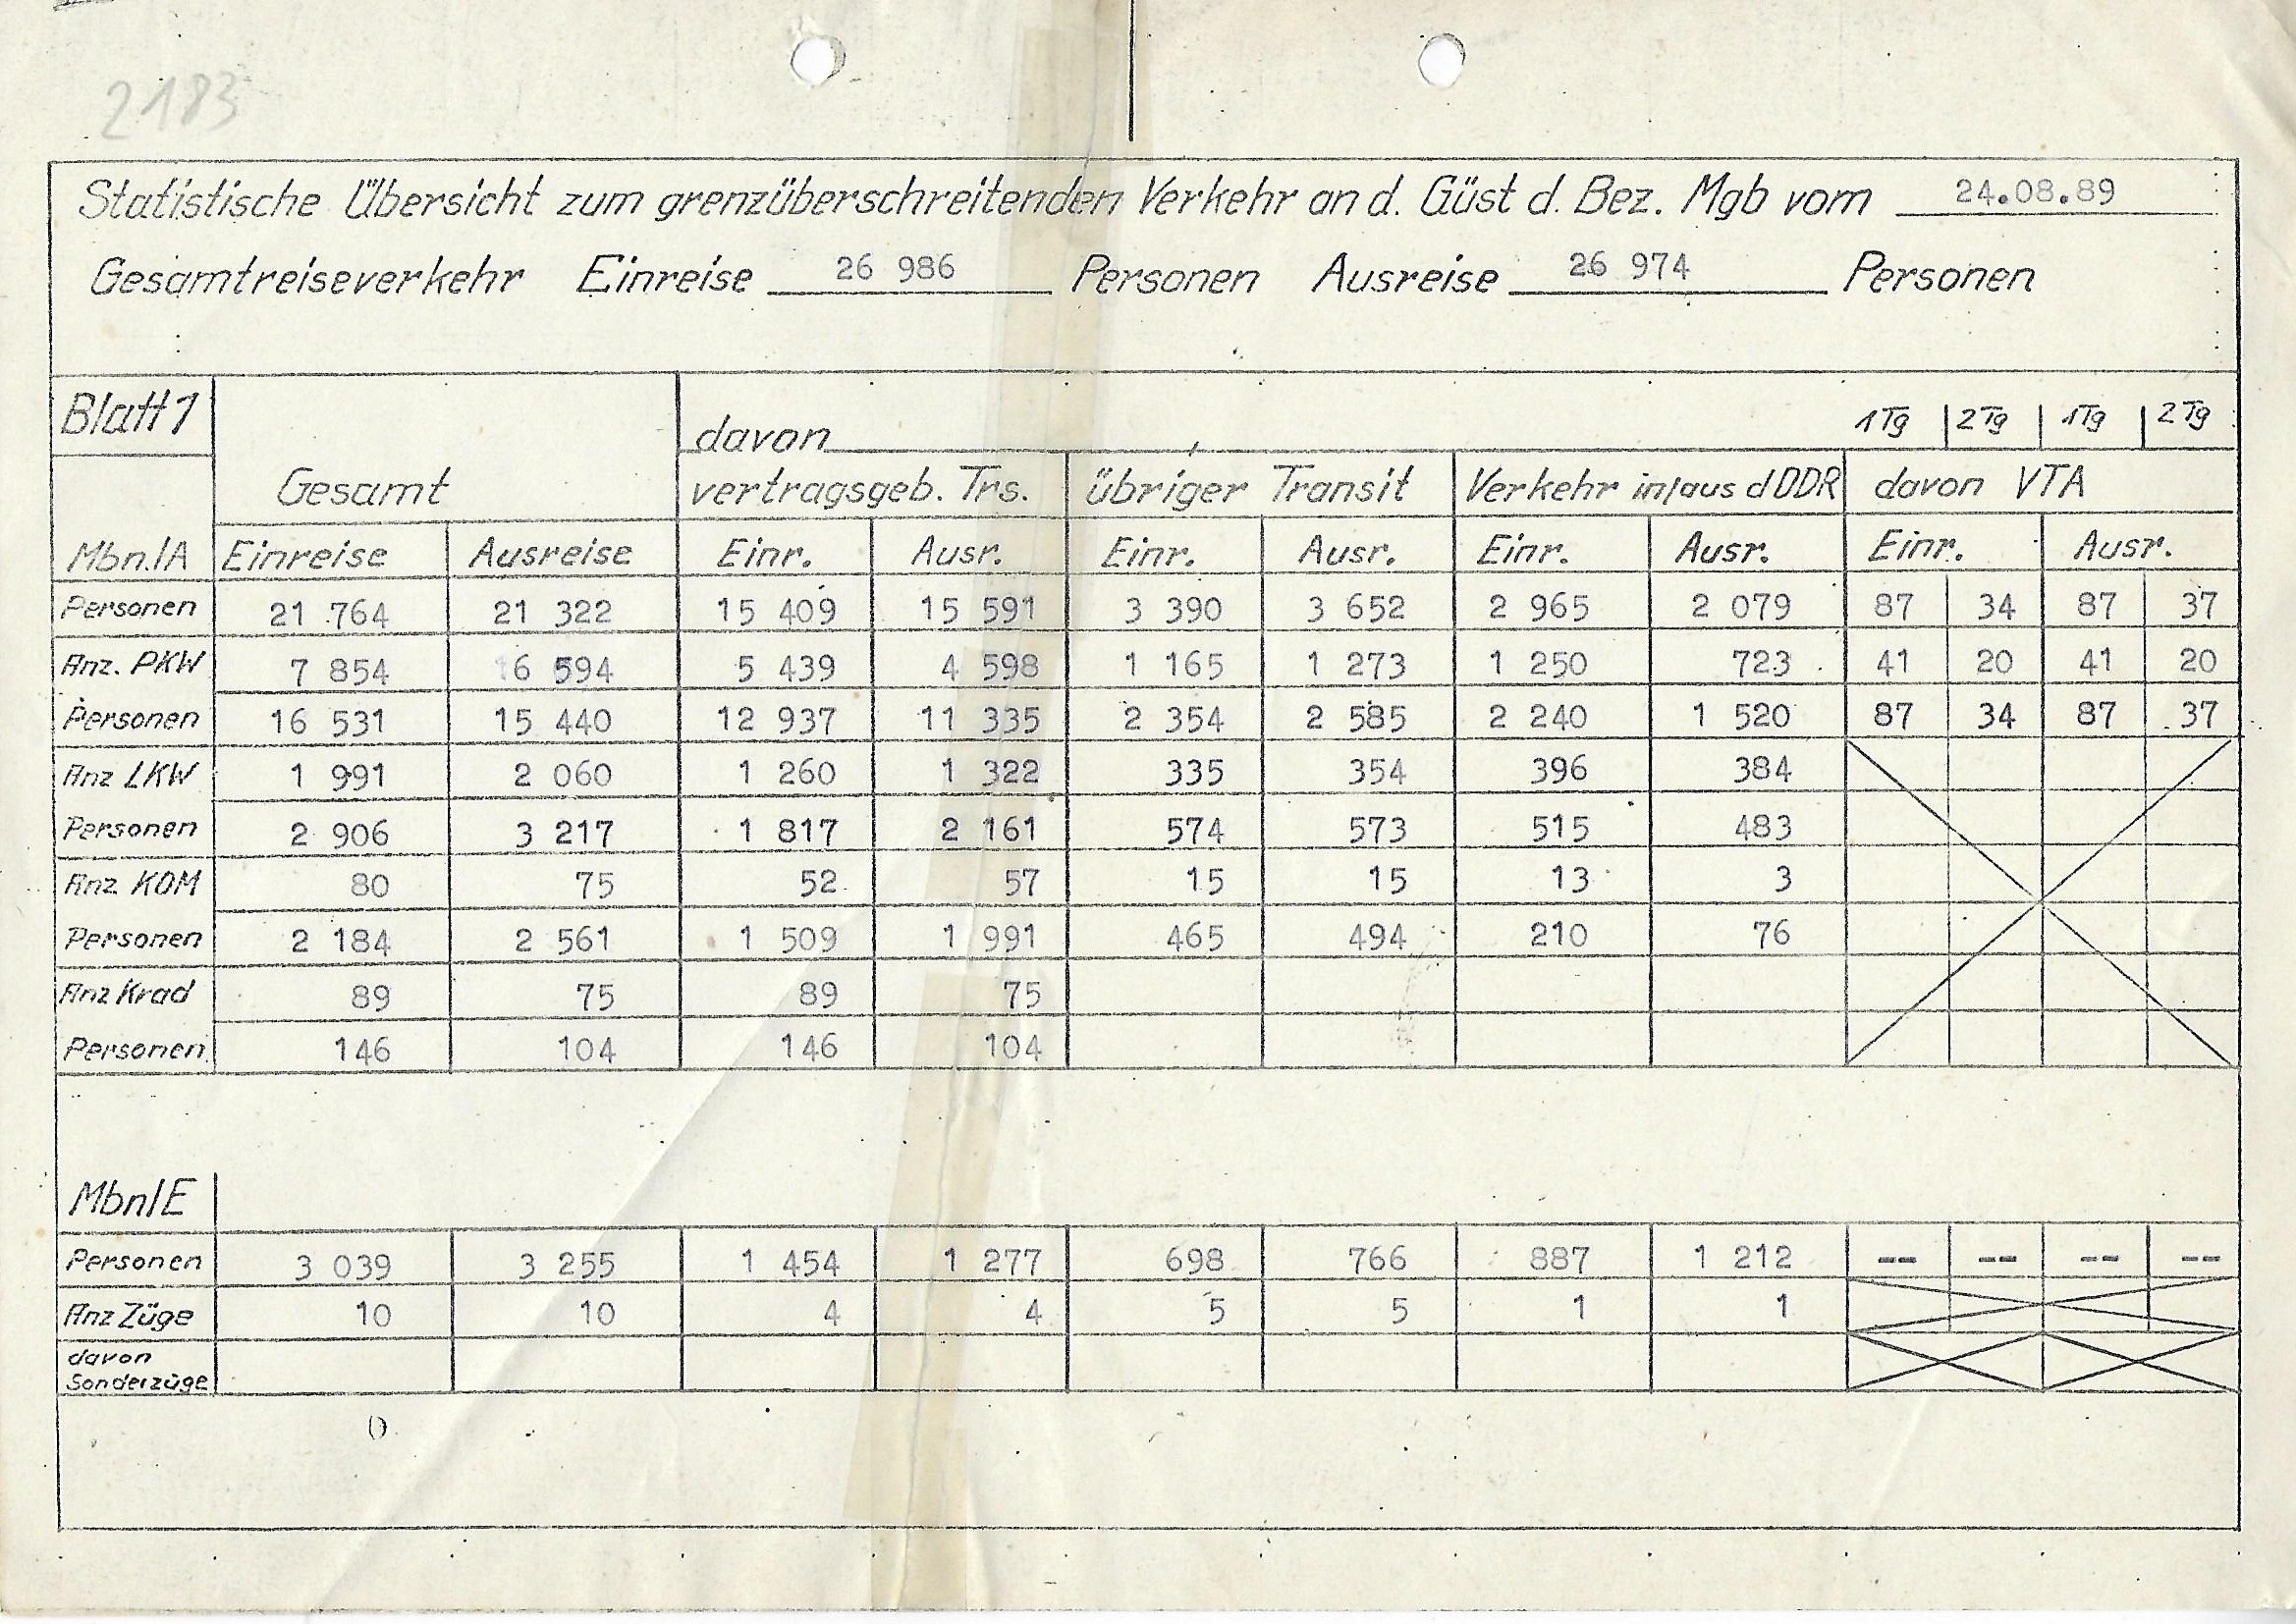 2183
Statistische Übersicht zum grenzüberschreitenden Verkehr an d. Güst d. Bez. Mgb vom 24.08.89
Gesamtreiseverkehr Einreise 26 986 Personen Ausreise 26 974 Personen
Blatt 1 davon 1 Tg 2 Tg 1 Tg 2 Tg
Gesamt vertragsgeb. Trs. übriger Transit Verkehr in/aus d DDR davon VTA
Mbn./A Einreise Ausreise Einr. Ausr. Einr. Ausr. Einr. Ausr. Einr. Ausr.
Personen 21 764 21 322 15 409 15 591 3 390 3 652 2 965 2 079 87 34 87 37
Anz. PKW 7 854 6 594 5 439 4 598 1 165 1 273 1 250 723 41 20 41 20
Personen 16 531 15 440 12 937 11 335 2 354 2 585 2 240 1 520 87 34 87 37
Anz LKW 1 991 2 060 1 260 1 322 335 354 396 384
Personen 2 906 3 217 1 817 2 161 574 573 515 483
Anz KOM 80 75 52 57 15 15 13 3
Personen 2 184 2 561 1 509 1 991 465 494 210 76
Anz Krad 89 75 89 75
Personen 146 104 146 104
Mbn/E
Personen 3 039 3 255 1 454 1 277 698 766 887 1 212 -- -- -- --
Anz Züge 10 10 4 4 5 5 1 1
davon
Sonderzüge